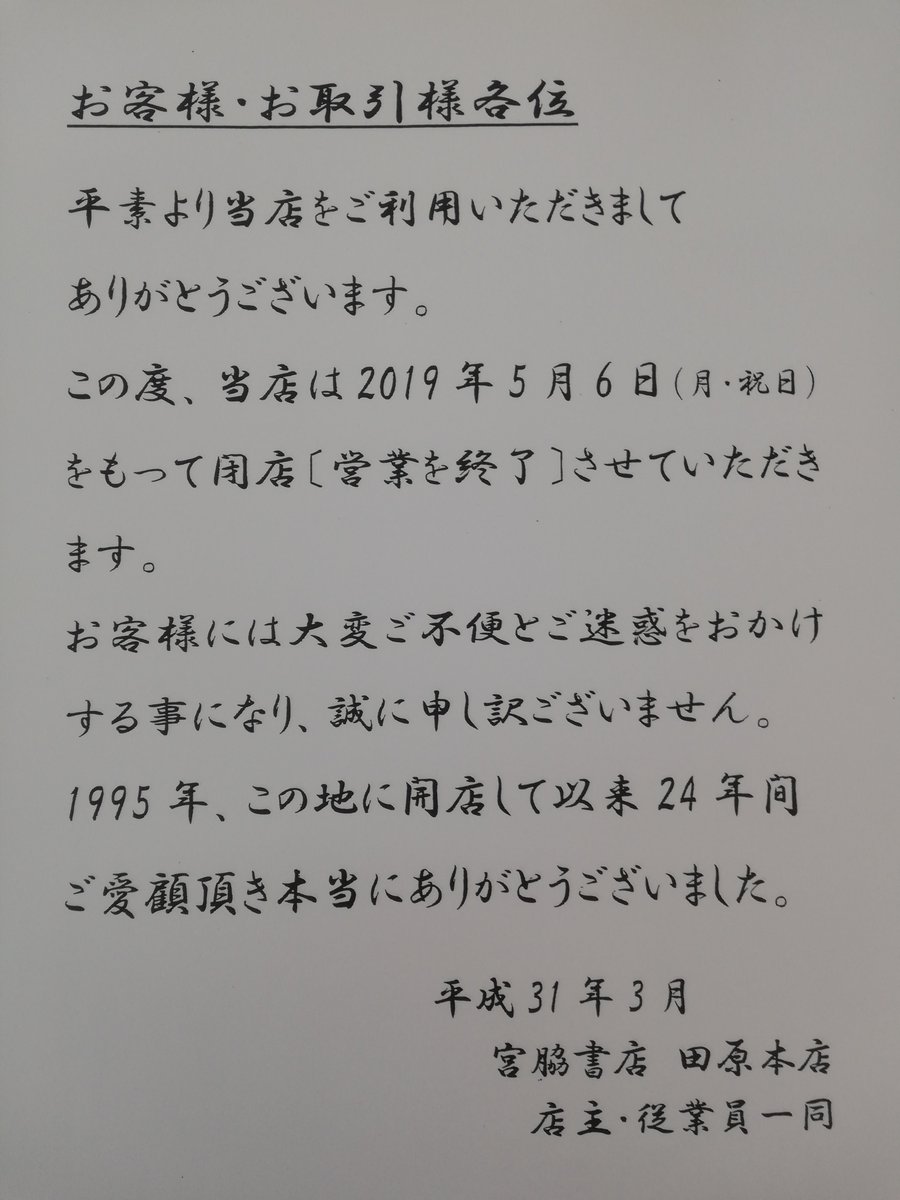 お客様・お取引様各位
平素より当店をご利用いただきまして
ありがとうございます。
この度、当店は2019年5月6日(月・祝日)
をもって閉店〔営業を終了〕させていただき
ます。
お客様には大変ご不便とご迷惑をおかけ
する事になり、誠に申し訳ございません。
1995年、この地に開店して以来24年間
ご愛顧頂き本当にありがとうございました。
平成31年3月
宮脇書店 田原本店
店主・従業員一同